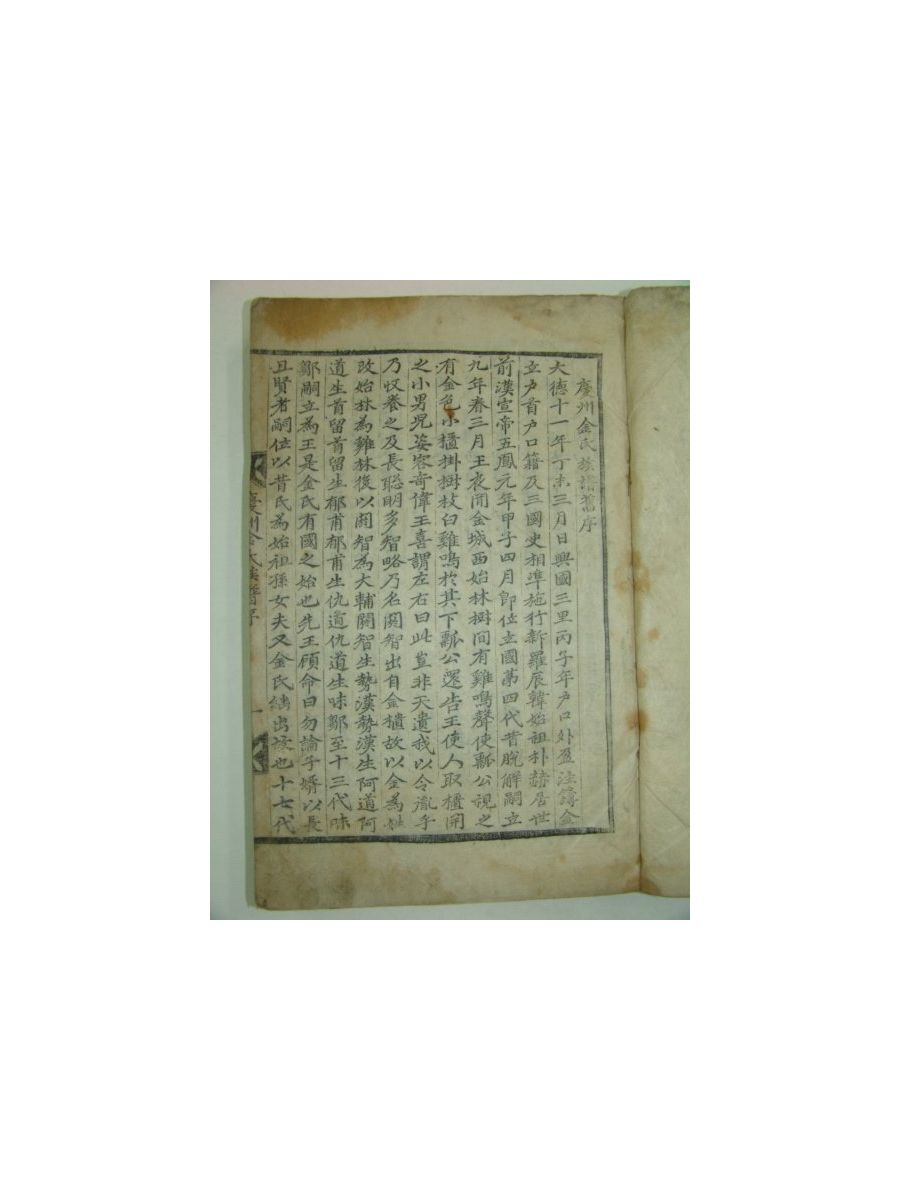 慶州金氏族譜舊序
大德十一年丁未三月日興國三里丙子年户口外盈法鑄金
立户首户口籍及三國史相準施行新羅辰韓始祖朴赫居世
前漢宣帝五鳳元年甲子四月卽位立國第四代昔脫解嗣立
九年春三月王夜聞金城西始林樹間有雞鳴聲使瓢公視之
有金色小櫃掛樹枝白雞鳴於其下瓢公還告王使人取櫃開
之小男兒姿容奇偉王喜謂左右曰此豈非天遺我以令胤乎
乃收養之及長聰明多智略乃名閼智出自金櫃故以金爲姓
改始林為雞林後以閼智為大輔閼智生勢漢勢漢生阿道阿
道生首留首留生郁甫郁甫生仇道仇道生味鄒至十三代味
鄒嗣立為王是金氏有國之始也先王顧命曰勿論子婿以長
且賢者嗣位以昔氏為始祖孫女夫又金氏出也十七代
慶州金氏族譜序 一